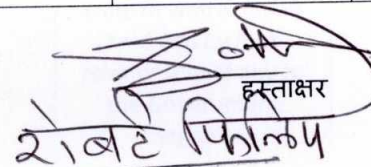 हस्ताक्षर
रोबर्ट फिलिप